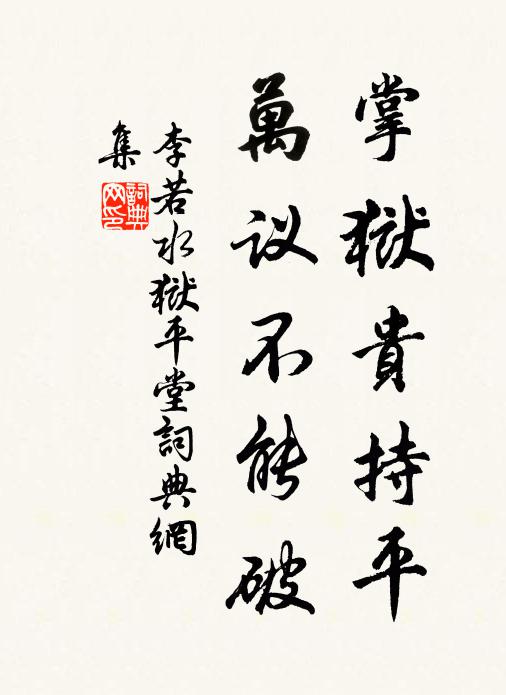 掌獄貴持平
萬议不能破
李若水獄平堂詞典網
集
詞典
网印